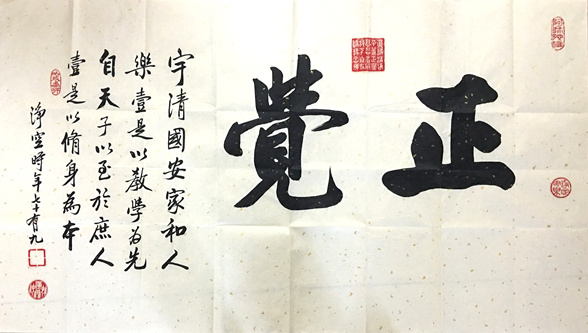 正覺
宇清國安家和人
樂壹是以教學為先
自天子以至於庶人
壹是以脩身為本
淨空時年七十有九